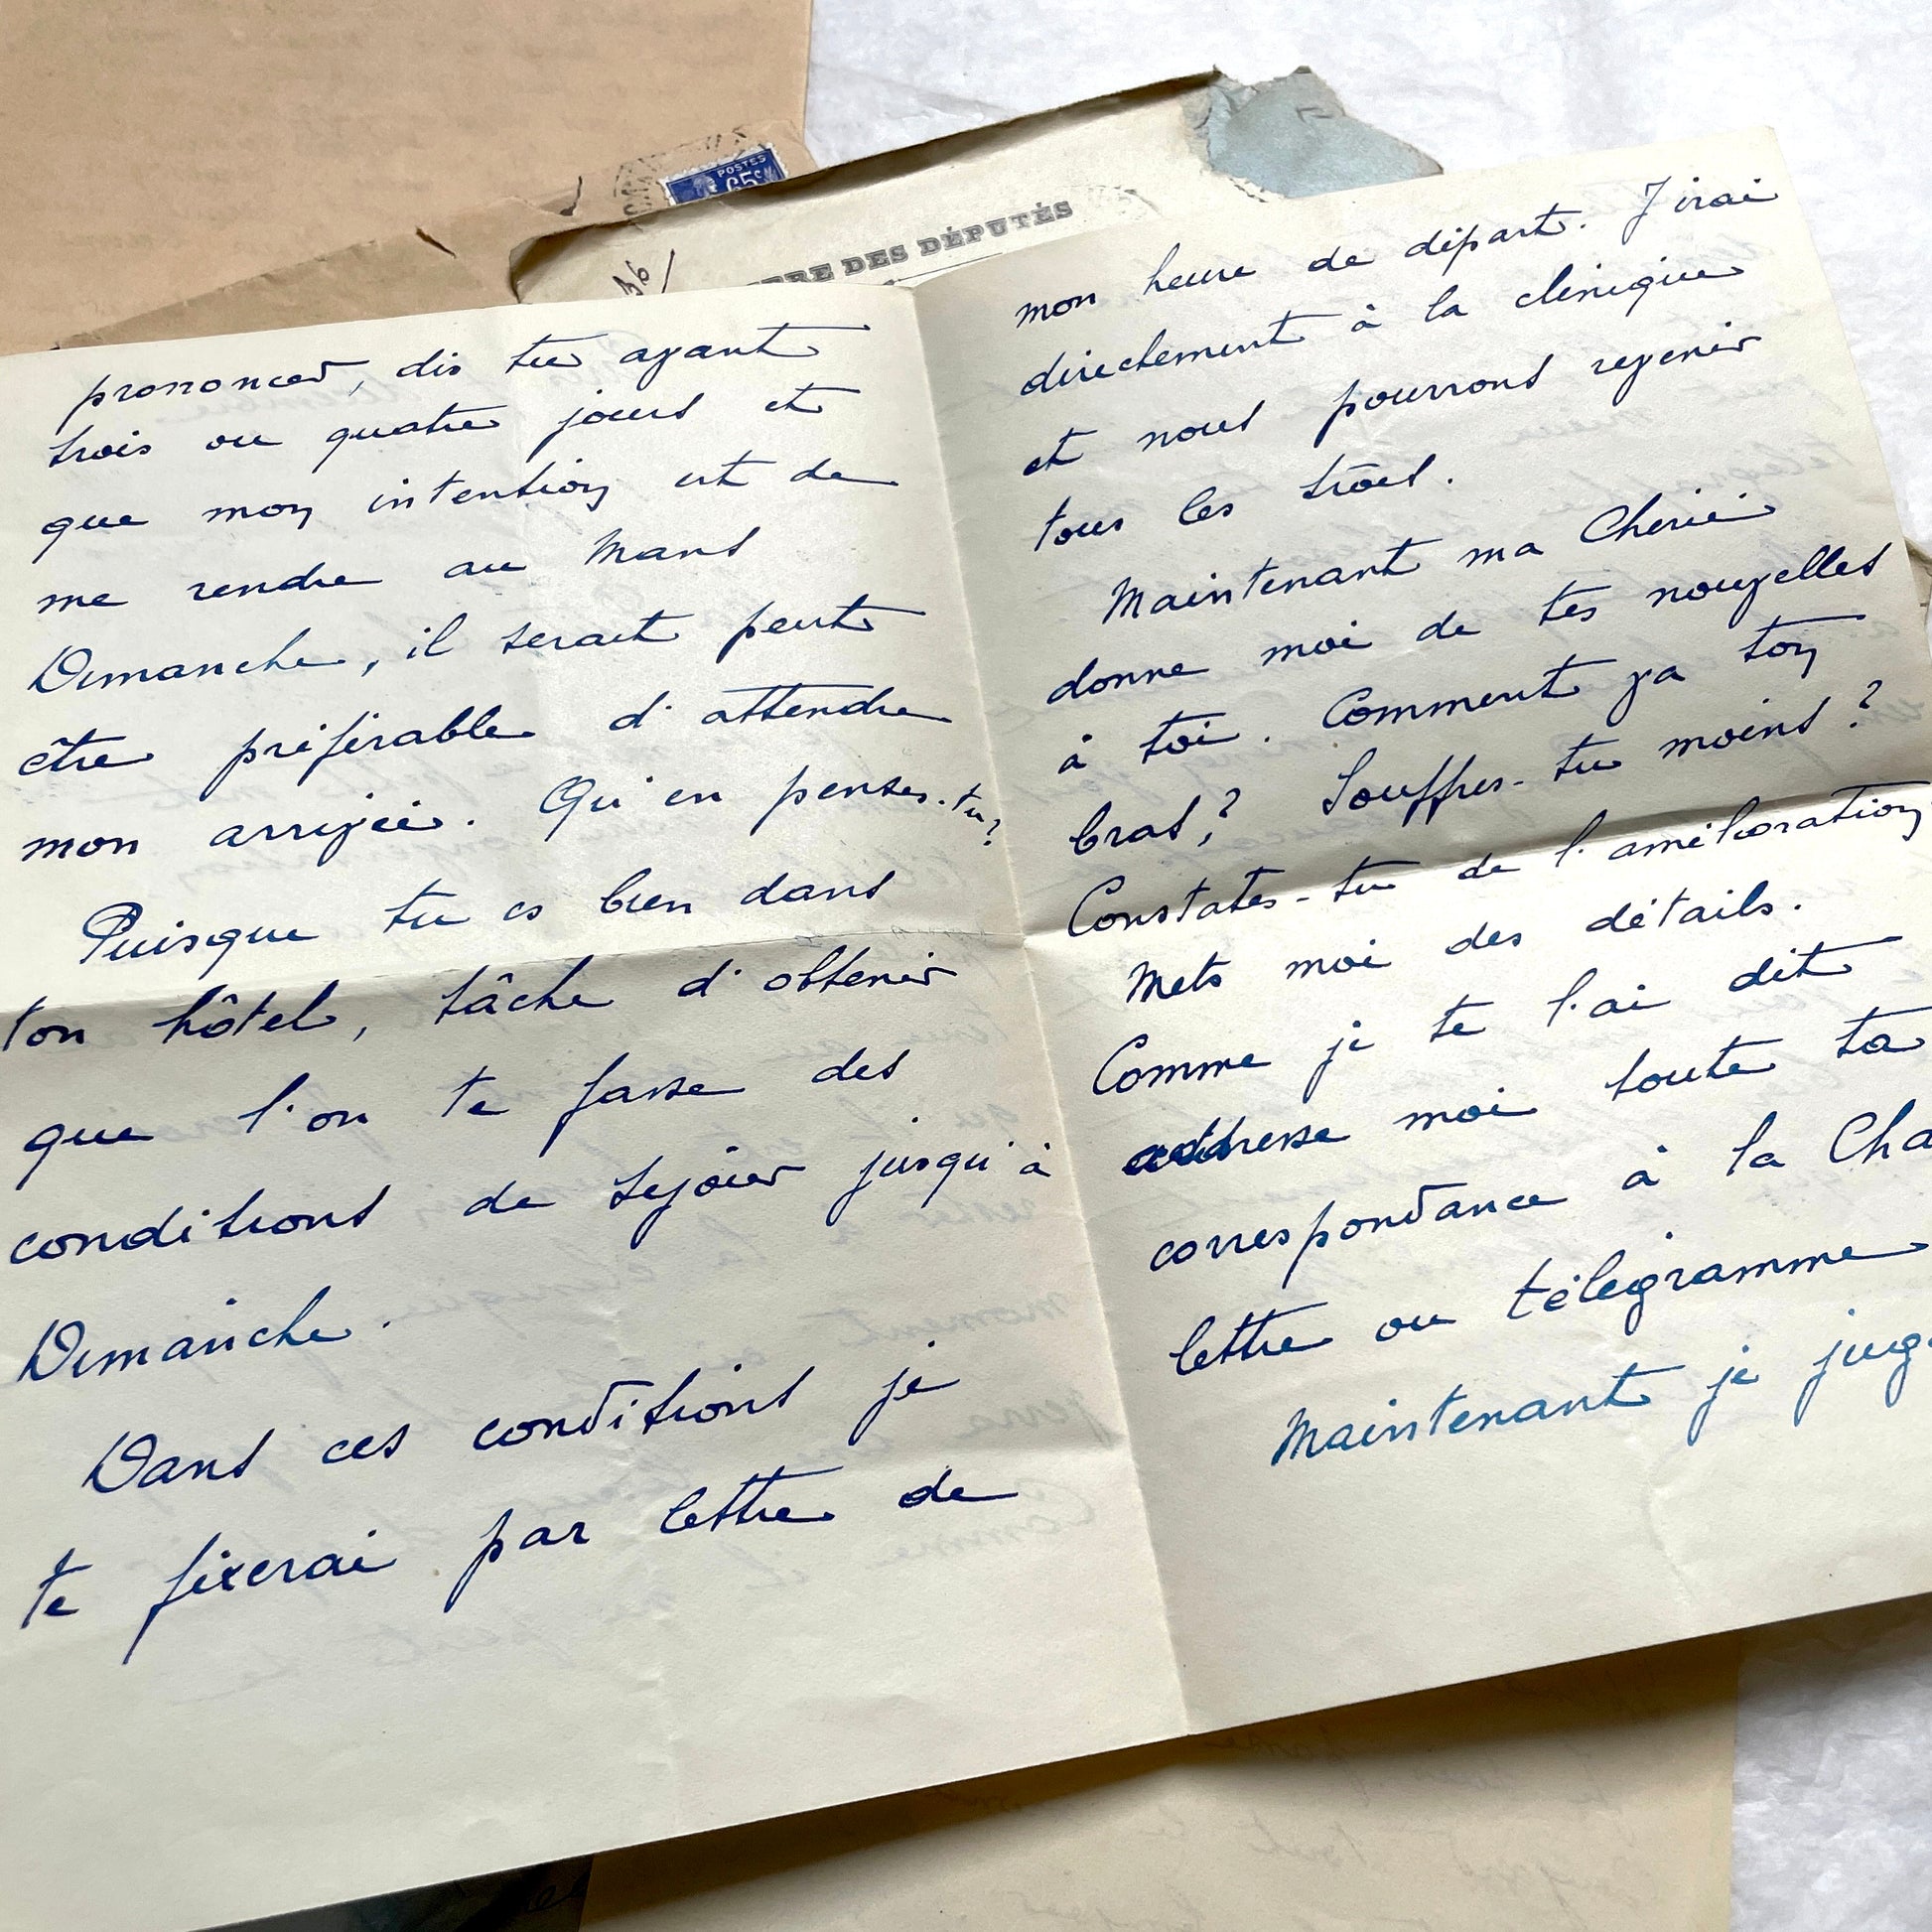 POSTES
65c
RE DES DÉPUTÉS
36
prononcer, dis tu avant
trois ou quatre jours et
que mon intention est de
me rendre au Mans
Dimanche, il serait peut
être préférable d'attendre
mon arrivée. Qu'en penses-tu?
Puisque tu es bien dans
ton hôtel, tâche d'obtenir
que l'on te fasse des
conditions de séjour jusqu'à
Dimanche.
Dans ces conditions je
te fixerai par lettre de
mon heure de départ. J'irai
directement à la clinique
et nous pourrons revenir
tous les trois.
Maintenant ma Chérie
donne moi de tes nouvelles
à toi. Comment va ton
bras? Souffres-tu moins?
Constates-tu de l'amélioration
Mets moi des détails.
Comme je te l'ai dit
addresse moi toute ta
correspondance à la Cha
lettre ou télégramme
Maintenant je jug